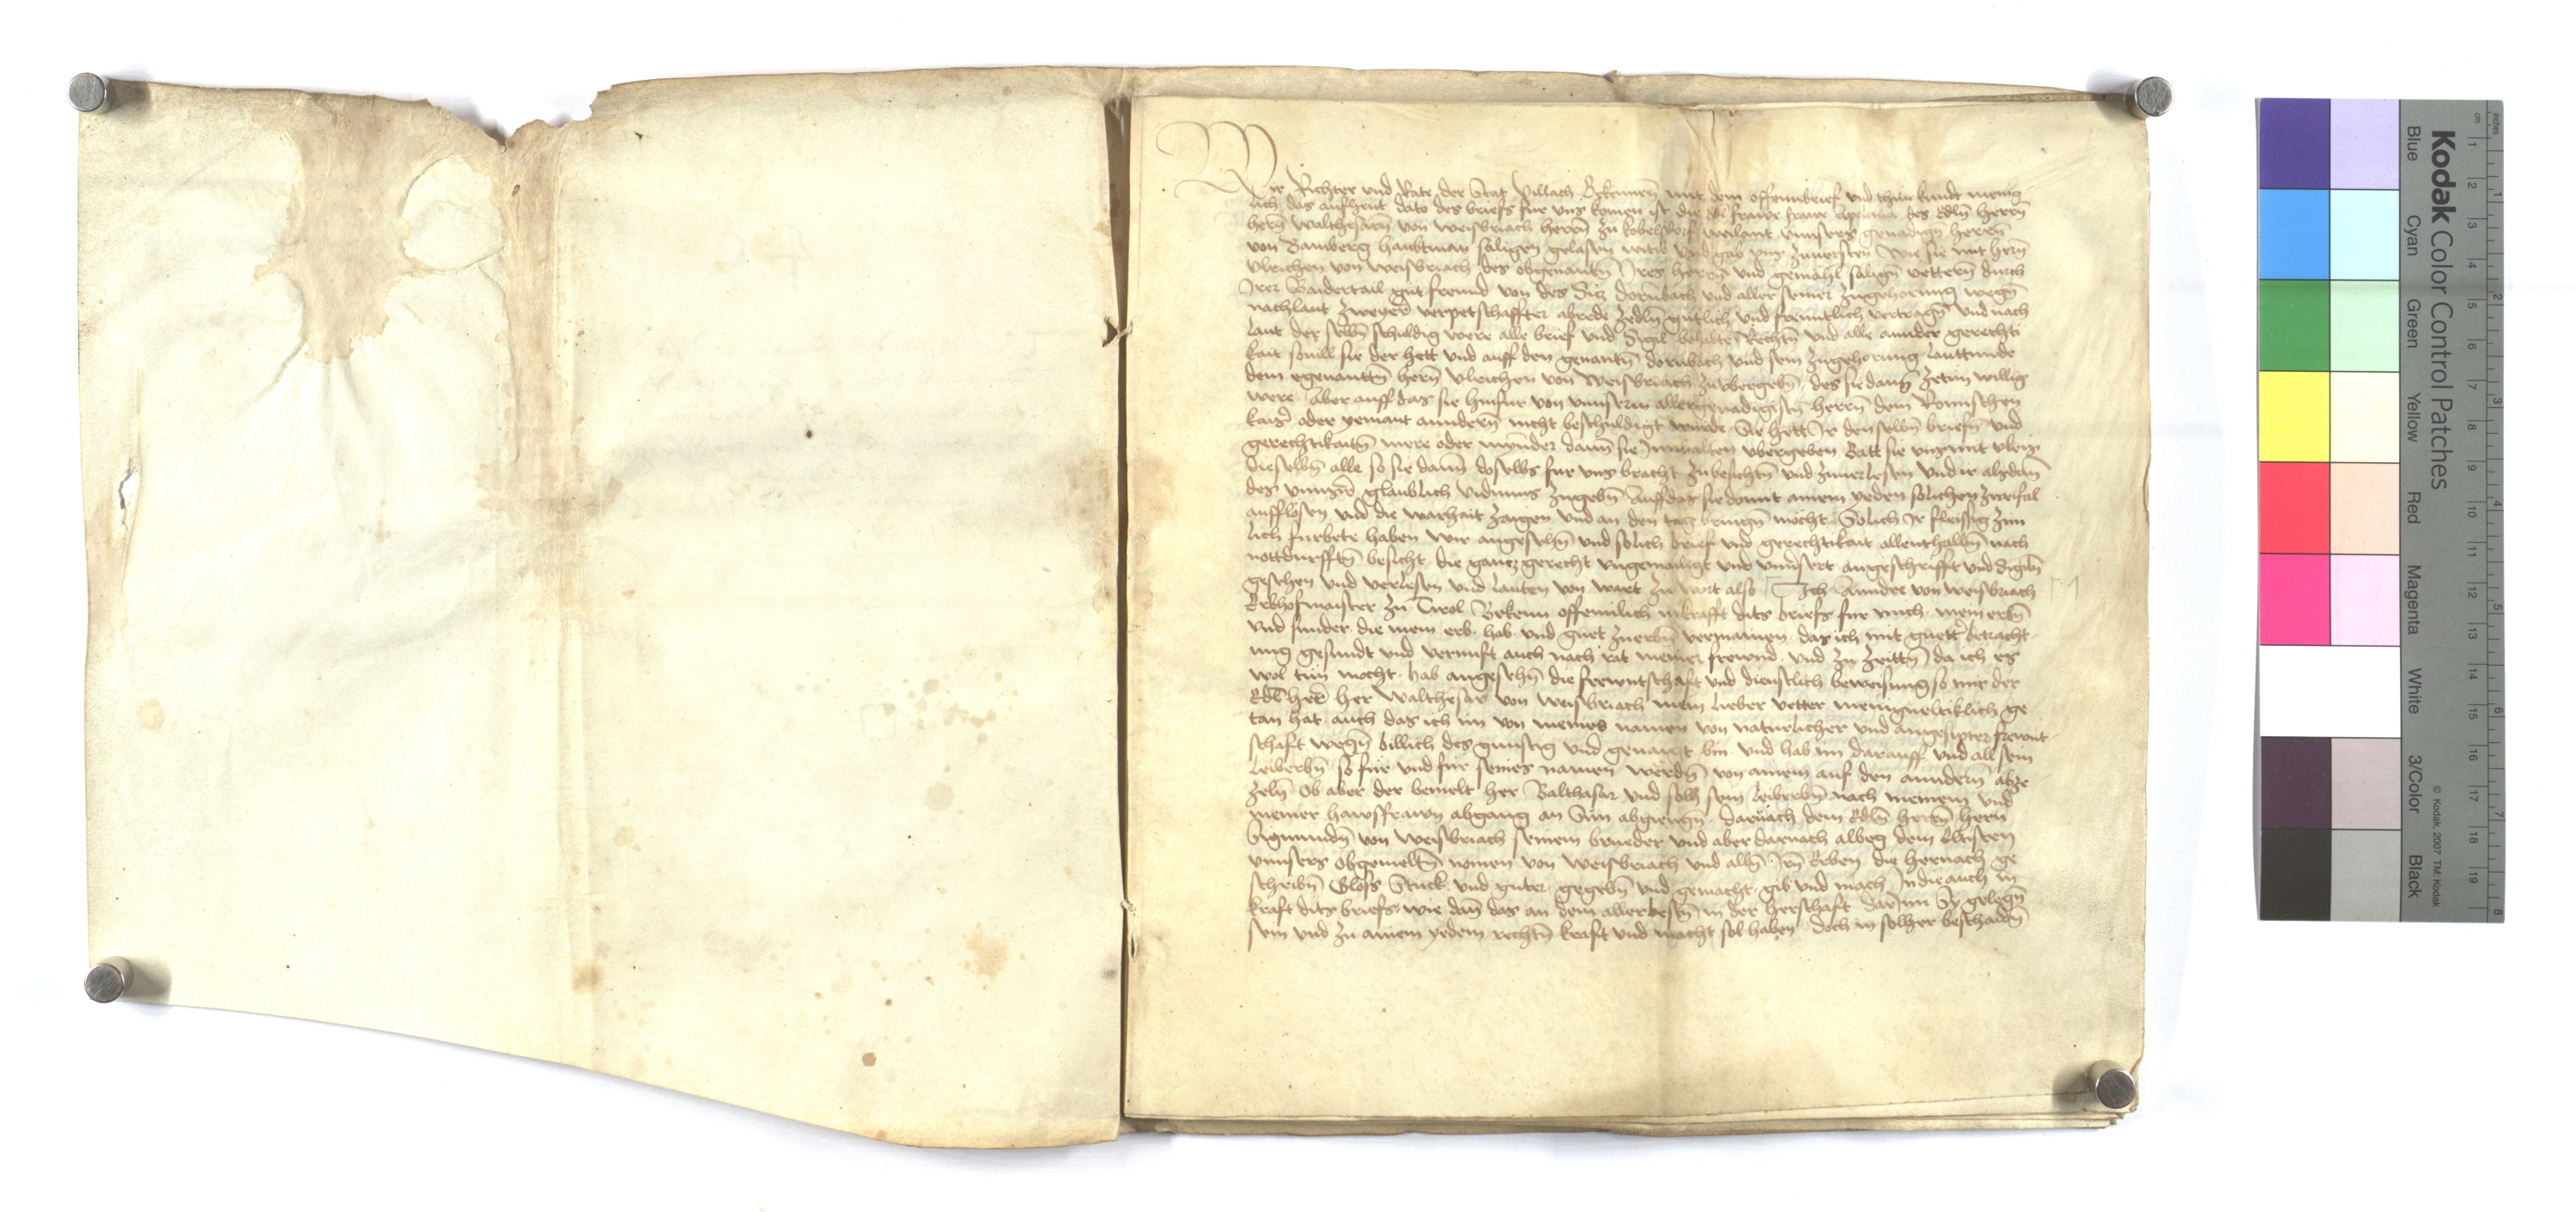 Wir Richter und Rate der Stat Villach Bekennen mit dem offennbrief und thun kundt menig
lich das auf heut dato des briefs fur uns komen ist die Edl frawe frawe des Edln herrn
hern Walthesarn von Weisbriach herrn zu kobelsdorf weilant unnsers genadign herrn
von Bamberg haubtman saligen gelasen witib und gab uns zuuersten Wie sie mit hern
Ulrichen von Weisbriach des obgenantn Jres herrn und gemahl salign vettern durch
Jrer Baidertail gut freund von des Sitz dornbach und aller seiner zugehorung wegn
nachlaut zwayer verpetschaffter abrede zedln gutlich und freuntlich vertragn und nach
laut der selbn schuldig were alle brief und Sigil behalte Rechtn und alle annder gerechti
kait souill sie der hett und auff den genantn dornbach und sein zugehorung lauttunde
dem egenanttn hern Ulrichen von Weisbriach zu ubergebn des sie dann zetun willig
were Aber auff das sie hinfur von unnserm allergenadigistn herrn dem Romischen
kaiser oder yemant anndern nicht beschuldigt wurde Sie hett Jr denselbn briefn und
gerechtikaitn mere oder mynder dann sie Jnnhalten ubergeben Batt sie uns mit vleis
dieselbn alle so sie dann doselbs fur uns bracht zubesichtn und zuuerlesen und ir alsdann
des unnser glaublich vidimus zugebn Auff das sie domit ainem yeden solichen zweifal
aufflosen und die warhait zaigen und an den tag bringn mocht Solich Jr fleissig zim
lich furbete haben wir angesehn und solich brief und gerechtikait allenthalbn nach
nottdurfftn besicht die gantz gerecht ungemailigt und unnsert angeschrifft und Sigiln
gesehen und verlesen und lauten von wort zu wort also Ich Annder von Weisbriach
Erbhofmaister zu Tirol Bekenn offennlich in krafft dits briefs fur mich mein erbn
und sunder die mein erb hab und guet zuerbn vermainen das ich mit guetter betracht
ung gesundt und vernuft auch nach rat meiner frewnd und zu zeittn da ich es
wol tun mocht hab angesehn die frewntschaft und dienstlich beweisung so mir der
Edl her her Walthesar von Weisbriach mein lieber vetter menigueltiklich ge
tan hat auch das ich im von meines namen von naturlicher und angesipter frewnt
schaft wegn billich des gunstig und genaigt bin und hab im darauff und all sein
leiberbn so fur und fur seines namen werdn von ainem auf den anndern abze
zeln Ob aber der bemelt her Balthasar und solh sein leiberbn nach meinem und
meiner hawsfrawn abgang an Sun abgiengn darnach dem Edln herrn hern
Sigmundn von Weisbriach seinem brueder und aber darnach albeg dem Eltisten
unnsers obgemeltn namen von Weisbriach und alln Jrn Erben die hernach ge
schribn Gslos Stuck und guter gegebn und gemacht gib und mach Jn die auch in
kraft dits briefs wie dan das an dem allerbestn in der herschaft darinn Sy gelegn
sein und zu ainem yedem rechtn kraft und macht sol haben doch in solher beschaidn